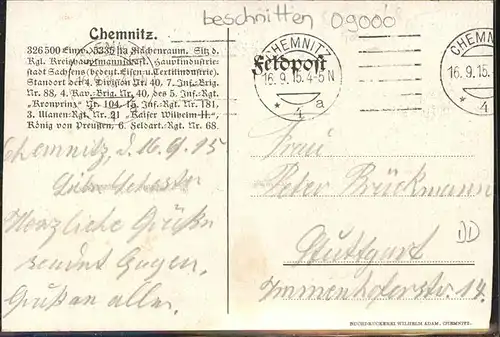 beschnitten 09000
Chemnitz.
326500 Einw. 3335 ha Flächenraum. Sitz d.
Kgl. Kreishauptmannschaft. Hauptindustrie-
stadt Sachsens (bedeut. Eisen- u. Textilindustrie).
Standort der 4. Division Nr. 40, 7. Inf.-Brig.
Nr. 88, 4. Kav.-Brig. Nr. 40, des 5. Inf.-Rgt.
„Kronprinz“ Nr. 104, 15. Inf.-Rgt. Nr. 181,
3. Ulanen-Rgt. Nr. 21 „Kaiser Wilhelm II.“,
König von Preußen, 6. Feldart.-Rgt. Nr. 68.
Feldpost
CHEMNITZ
16.9.15.4-5N
* 4 a
CHEMNITZ
16.9.15.
* 4
Chemnitz, d. 16.9.15
Liebe Schwester
Herzliche Grüße
sendet
Grüße an alle.
Frau
Peter Brückmann
Stuttgart
Immenhoferstr. 14.
DD
BUCHDRUCKEREI WILHELM ADAM, CHEMNITZ.